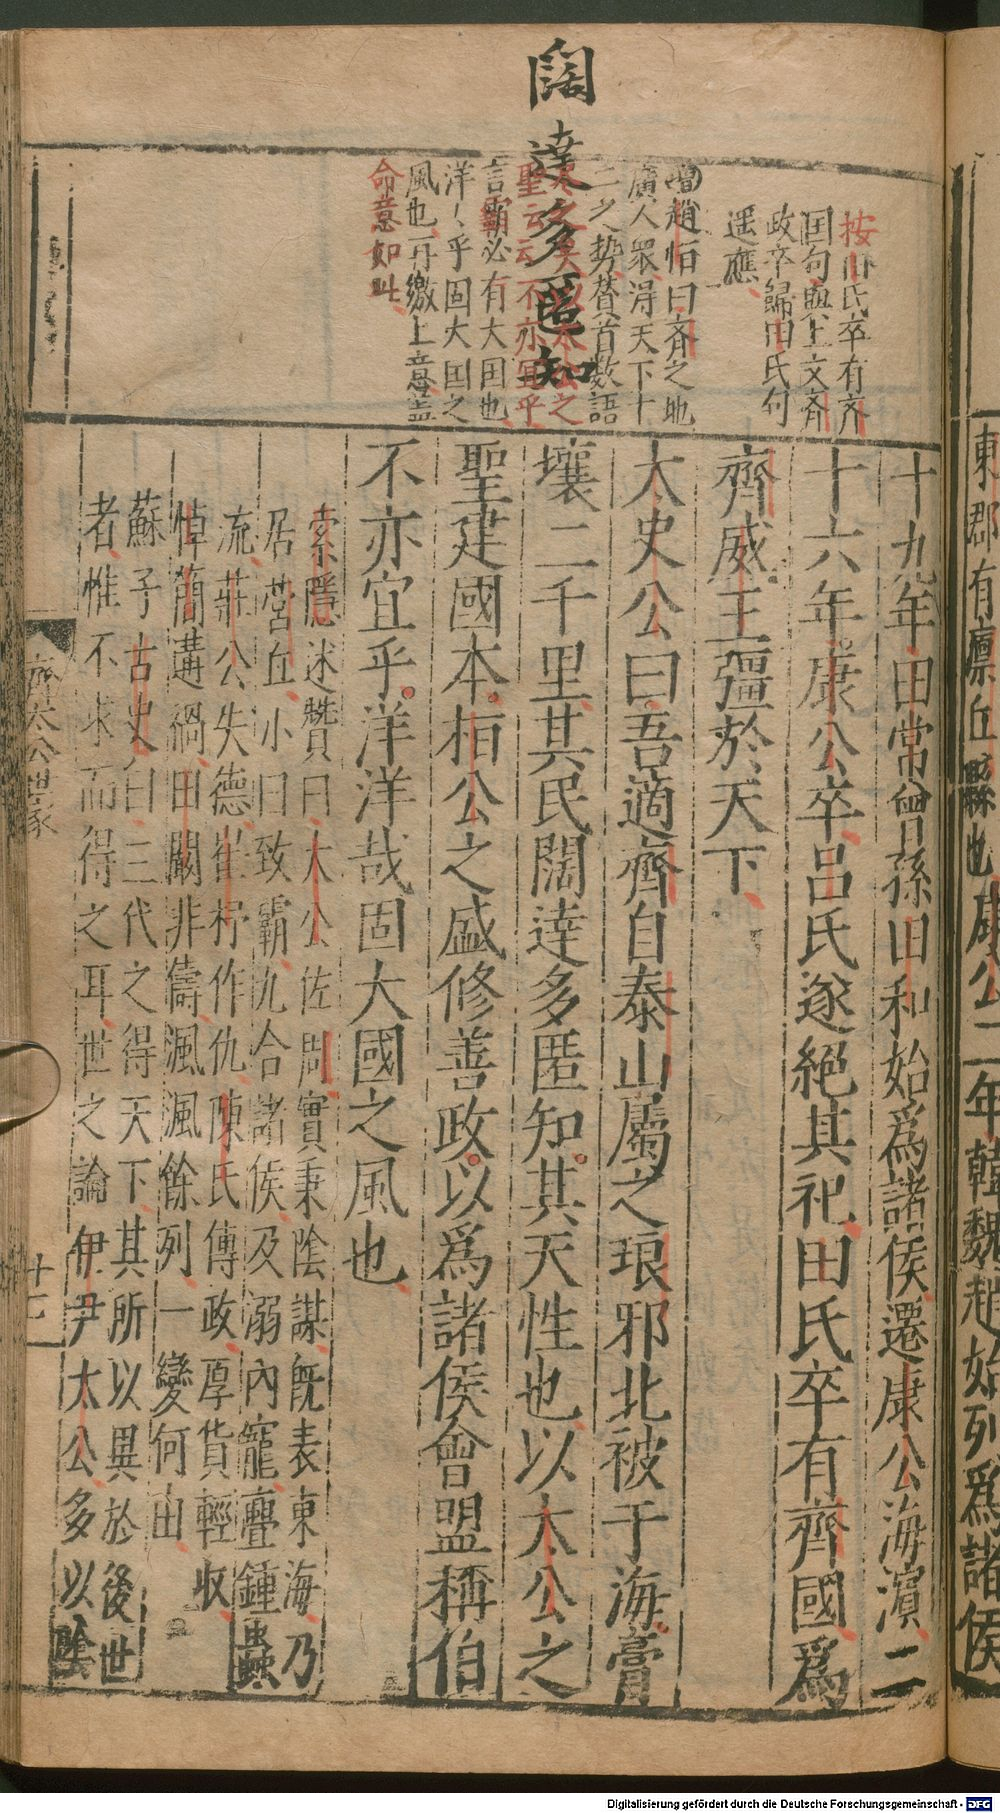 東郡有廩丘縣也康公二年韓魏趙始列爲諸侯
十九年田常曾孫田和始爲諸侯遷康公海濱二
十六年康公卒呂氏遂絕其祀田氏卒有齊國爲
齊威王彊於天下
太史公曰吾適齊自泰山屬之琅邪北被于海膏
壤二千里其民闊達多匿知其天性也以太公之
聖建國本桓公之盛修善政以爲諸侯會盟稱伯
不亦宜乎洋洋哉固大國之風也
索隱述贊曰太公佐周實秉陰謀旣表東海乃
居營丘小白致霸九合諸侯及溺內寵釁鍾蟲
流莊公失德崔杼作仇陳氏傳政厚貨輕收
悼簡遘禍田闞非儔渢渢餘列一變何由
蘇子古史曰三代之得天下其所以異於後世
者惟不求而得之耳世之論伊尹太公多以陰
闊達多匿知
按田氏卒有齊
国句與上文齊
政卒歸田氏句
遥應
增趙恒曰齊之地
廣人衆得天下十
二之势賛首数語
聖云云不亦宜乎
言霸必有大国也
洋〻乎固大国之
風也再繳上意盖
命意如此
齊太公世家
十七
Digitalisierung gefördert durch die Deutsche Forschungsgemeinschaft - DFG